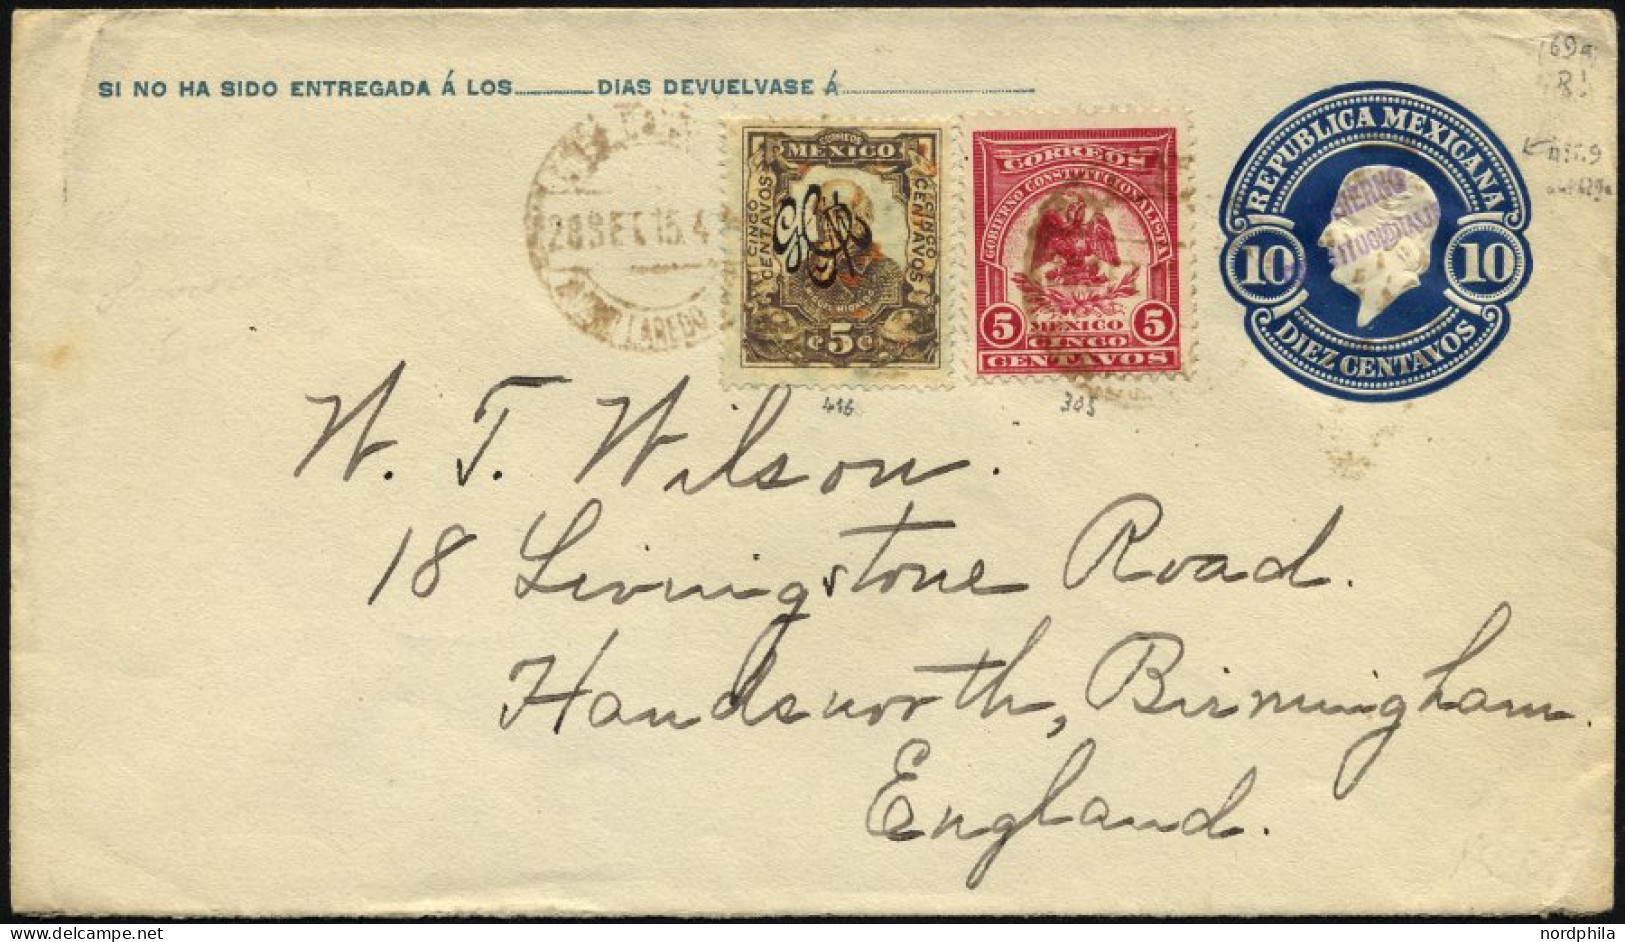 SI NO HA SIDO ENTREGADA Á LOS DIAS DEVUELVASE Á
CORREOS
MEXICO
CINCO CENTAVOS
CINCO CENTAVOS
¢5¢
CORREOS
GOBIERNO CONSTITUCIONALISTA
5 MEXICO 5
CINCO
CENTAVOS
REPUBLICA MEXICANA
10 10
DIEZ CENTAVOS
28 SET 15. 4
LAREDO
416
305
W. T. Wilson.
18 Livingstone Road.
Handsworth, Birmingham.
England.
nordphila